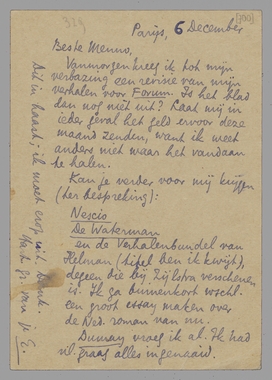 324
[1931]
Parijs, 6 December
Beste Menno,
Vanmorgen kreeg ik tot mijn
verbazing een revisie van mijn
verhalen voor Forum. Is het blad
dan nog niet uit? Laat mij in
ieder geval het geld ervoor deze
maand zenden, want ik weet
anders niet waar het vandaan
te halen.
Kan je verder voor mij krijgen
(ter bespreking):
Nescio
De Waterman
en de Verhalenbundel van
Helman (titel ben ik kwijt),
degeen die bij Zijlstra verschenen
is. Ik ga binnenkort wschl.
een groot essay maken over
de Ned. roman van nu.
Dumay vroeg ik al. Ik had
nl. graag alles ingenaaid.
Dit in haast; ik moet erop uit. Dank.
Het ga van je E.